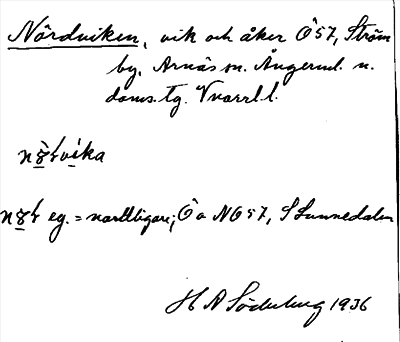 Nördviken, vik och åker Ö 57, Ström
by, Arnäs sn. Ångerml. n.
doms. tg. Vnorrl l.
vika
eg. = nordligare; Ö o NÖ 57, S Sunnedalen
H A Söderberg 1936